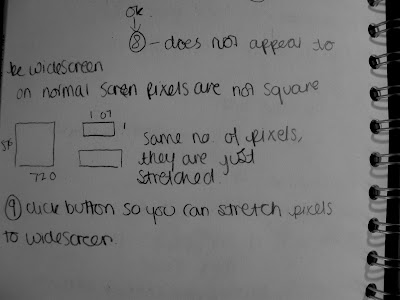 OK
⑧ - does not appear to
be widescreen
on normal screen pixels are not square
1 07
1
same no. of pixels,
they are just
stretched.
720
⑨ click button so you can stretch pixels
to widescreen.